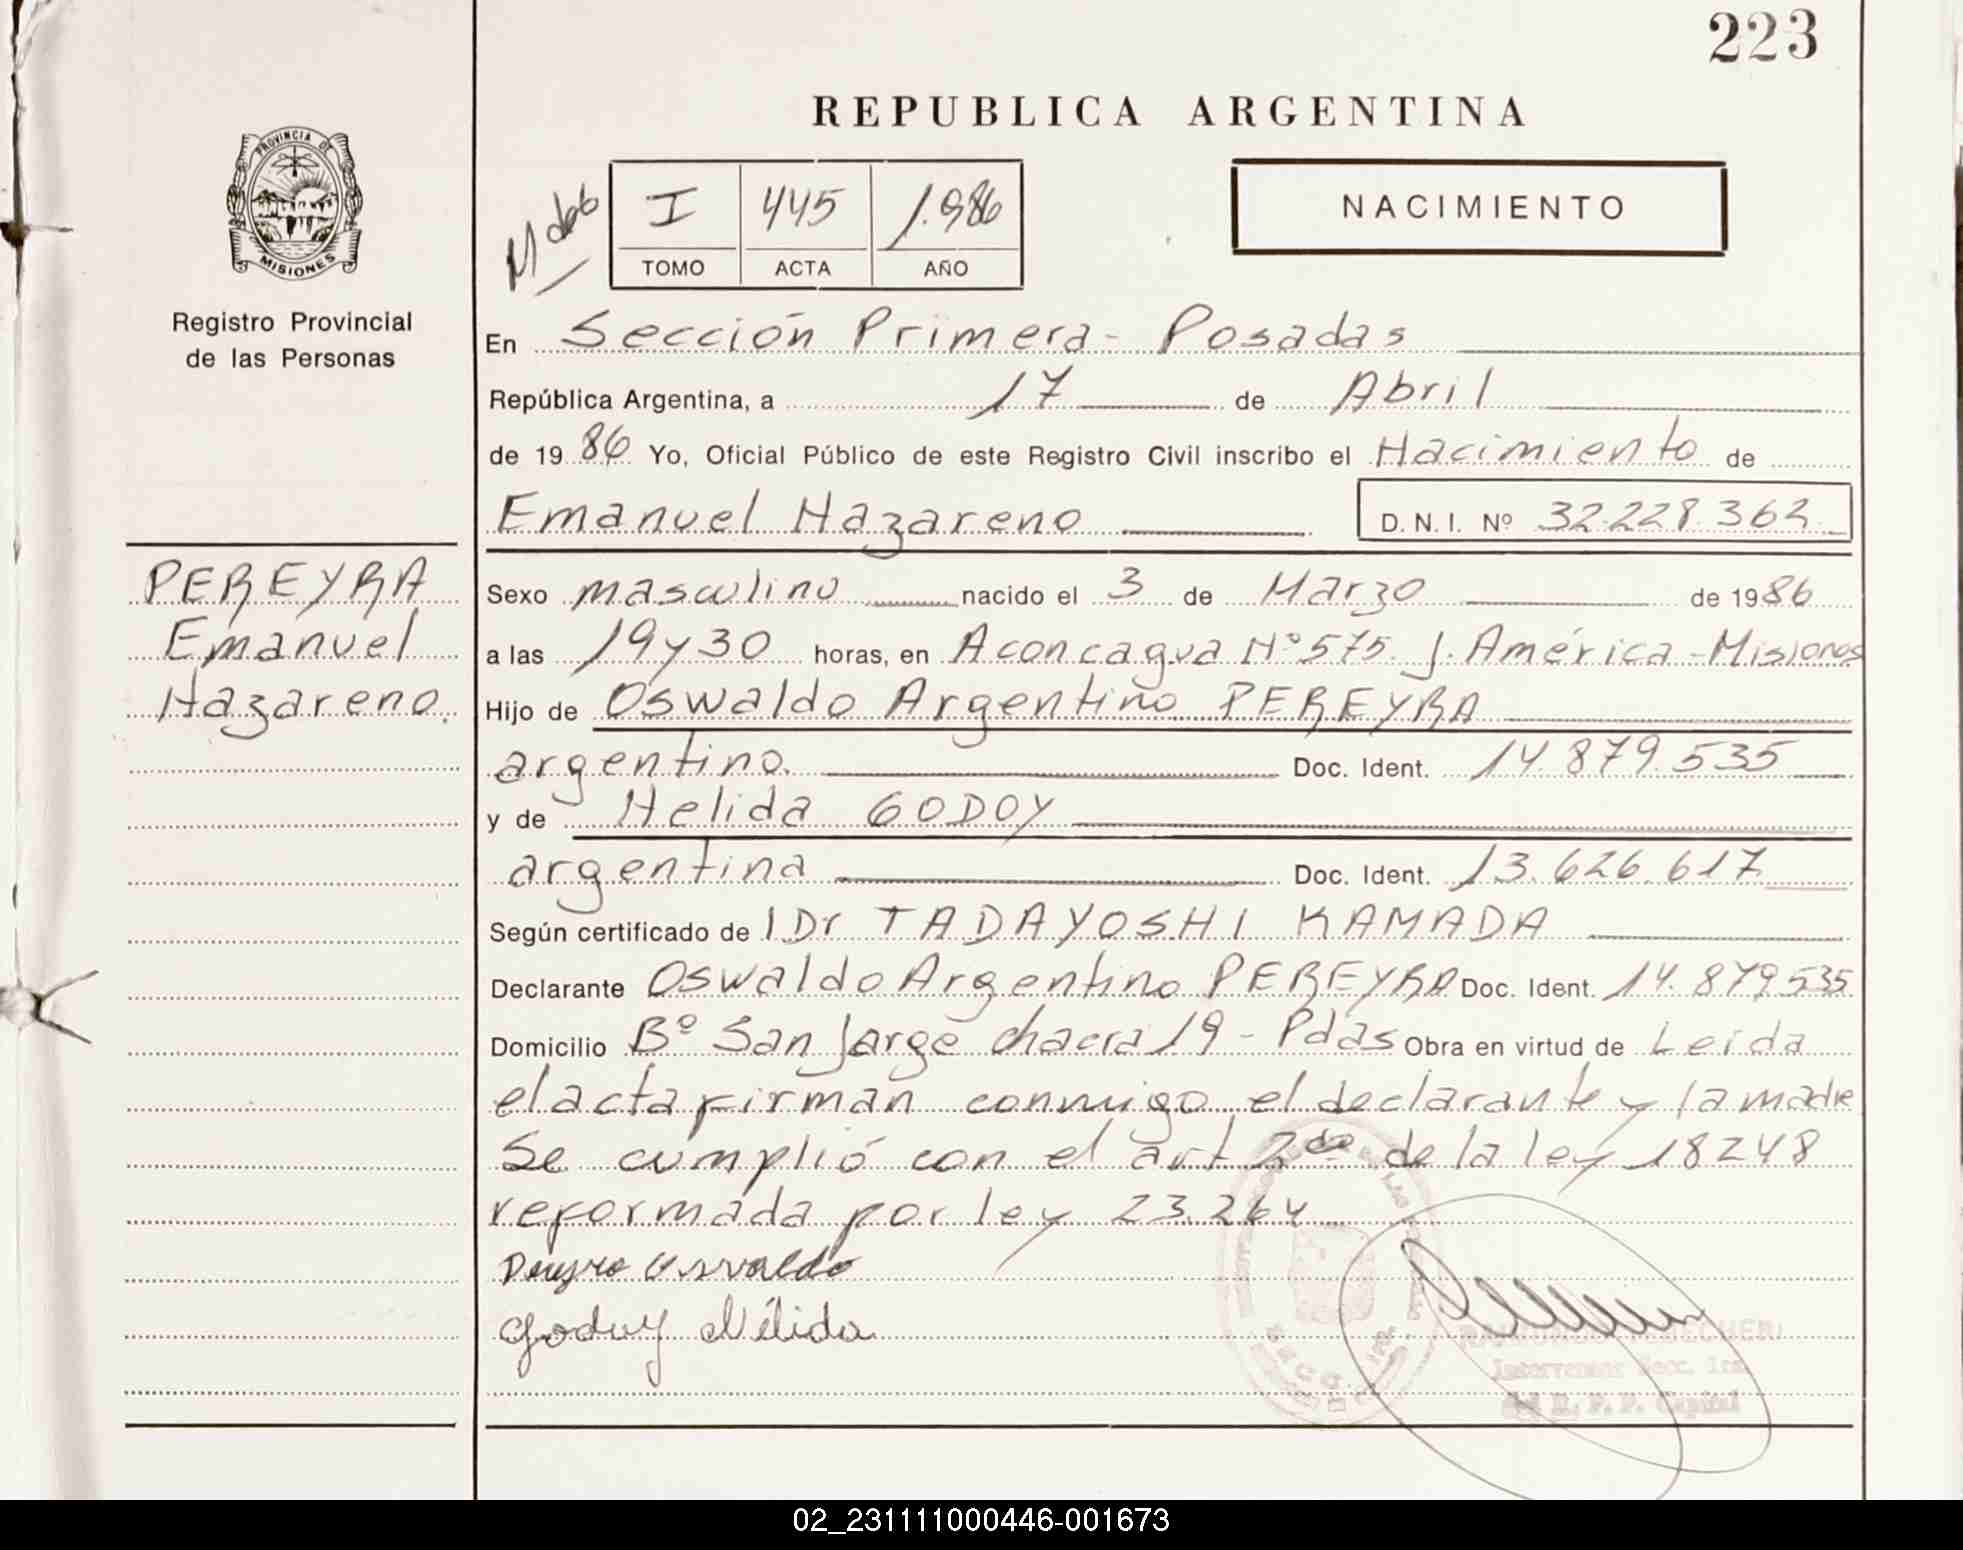 223
REPUBLICA ARGENTINA
PROVINCIA DE
MISIONES
Registro Provincial
de las Personas
I 445 1.986
TOMO ACTA AÑO
NACIMIENTO
En Sección Primera - Posadas
República Argentina, a 17 de Abril
de 1986 Yo, Oficial Público de este Registro Civil inscribo el Nacimiento de
Emanuel Nazareno D.N.I. Nº 32.228.363
PEREYRA
Emanuel
Nazareno.
Sexo masculino nacido el 3 de Marzo de 1986
a las 19 y 30 horas, en Aconcagua Nº 575. J. América - Misiones
Hijo de Oswaldo Argentino PEREYRA
argentino. Doc. Ident. 14.879.535
y de Nelida GODOY
argentina Doc. Ident. 13.626.617
Según certificado de l Dr TADAYOSHI KAMADA
Declarante Oswaldo Argentino PEREYRA Doc. Ident. 14.879.535
Domicilio Bº San Jorge chacra 19 - Pdas Obra en virtud de Leida
el acta firman conmigo el declarante y la madre
Se cumplió con el art 2do de la ley 18248
reformada por ley 23.264
Pereyra Osvaldo
Godoy Nélida
Interventor Secc. 1ra.
del R. P. P. Capital
02_231111000446-001673